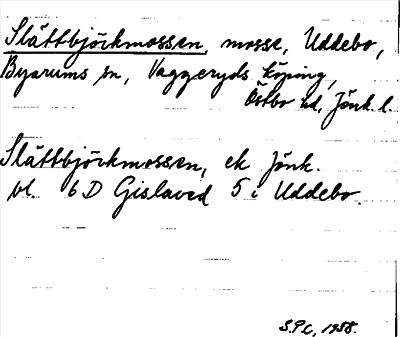 Slättbjörkmossen, mosse, Uddebo,
Byarums sn, Vaggeryds köping,
Östbo hd, Jönk. l.
Slättbjörkmossen, ek Jönk.
bl. 6 D Gislaved 5 i Uddebo.
S.P.L, 1958.